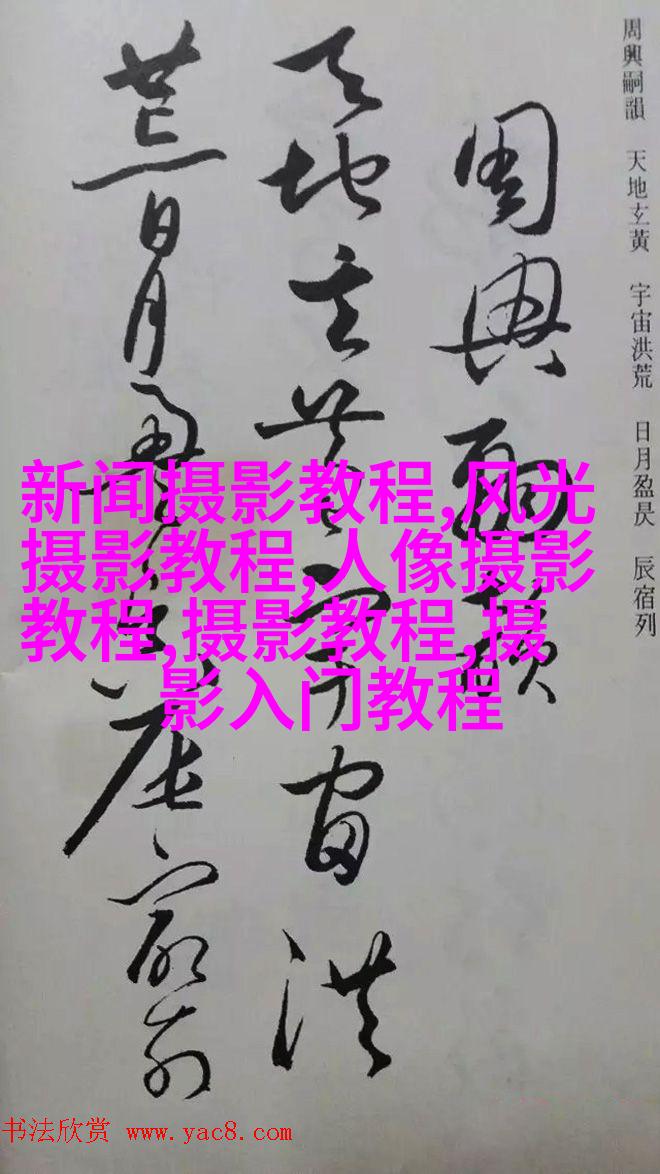 周興嗣韻　天地玄黃　宇宙洪荒　日月盈昃　辰宿列
周興嗣韻
天地玄黃宇宙洪
荒日月盈昃辰宿列
新闻摄影教程,风光
摄影教程,人像摄影
教程,摄影教程,摄
影入门教程
书法欣赏 www.yac8.com